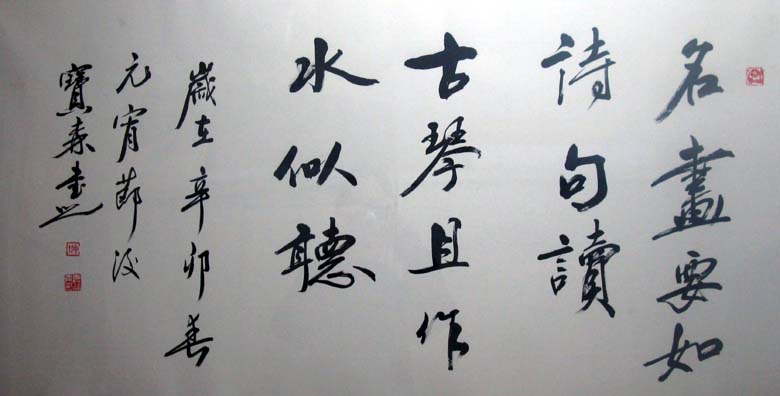 名畫要如
詩句讀
古琴且作
水似聽
歲在辛卯春
元宵節後
寶森書